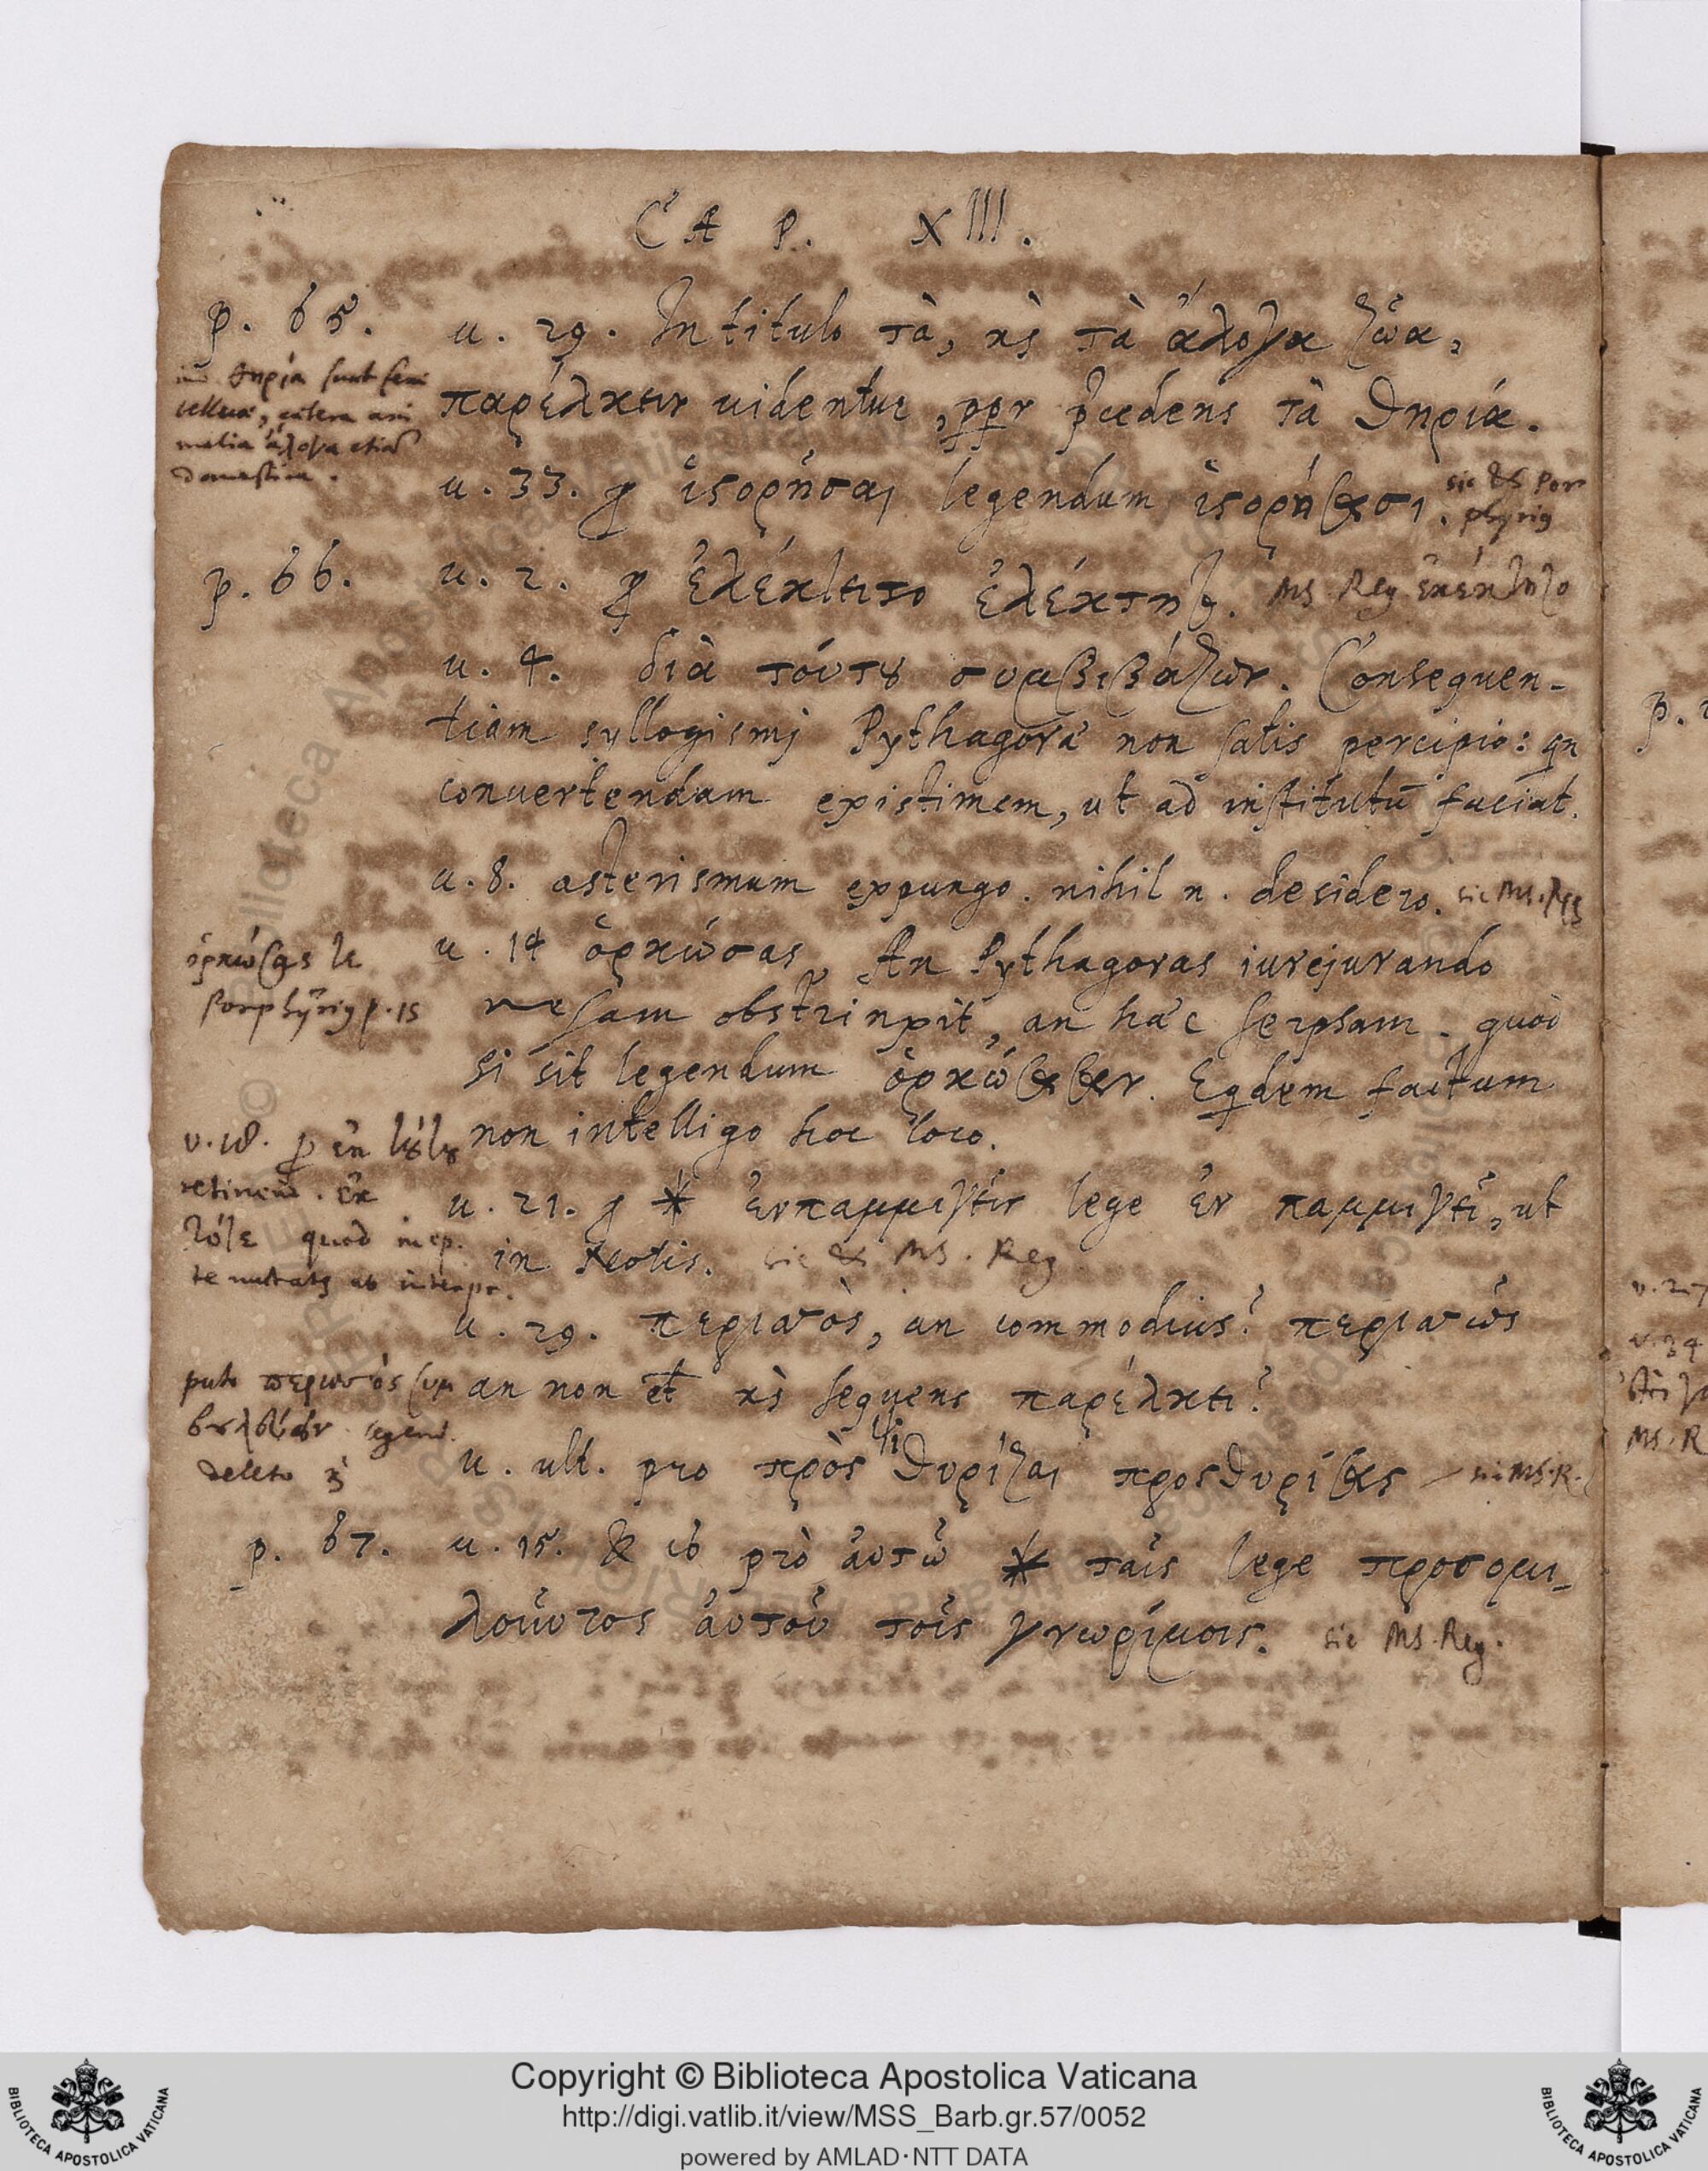 CAP. XIII.
p. 65. u. 29. In titulo τὰ, κὶ τὰ ἄλογα ζῶα,
παρέλκειν uidentur, ppr p̃cedens τὰ θηρία.
imo θηρία sunt feri
belluæ, cætera ani
malia ἄλογα etiã
domestica.
u. 33. ꝓ ἱϛορῆσαι legendum ἱϛορήϐασι.
sic & Por
phyrius
p. 66. u. 2. ꝓ ἐλέκτειτο ἐλέκτητο. MS Reg
u. 4. διὰ τούτȣ συμβιβάζων. Consequen-
tiam syllogismi Pythagoræ non satis percipio: qn
conuertendam existimem, ut ad institutũ faciat.
u. 8. asterismum expungo. nihil n. desidero. sic MS. Reg
u. 14 ὁρκώσας An Pythagoras iurejurando
ursam obstrinxit, an hæc seipsam. quod
si sit legendum Eqdem factum
non intelligo hoc loco.
ὁρκώσας le
Porphyrius p. 15
retinend. ἐκ
τότε quod inep.
te mutatũ ab interpr.
u. 21. ꝓ * ἐνπαμμιγεῖν lege ἐν παμμιγεῖ, ut
in Notis. sic & MS. Reg
u. 29. περιατὸς, an commodius? περιατῶς
an non et κὶ sequens παρέλκει?
puto
legend.
deleto
u. ult. pro πρὸς θυρίζαι προσθυρίϐας sic MS. R.
p. 67. u. 15. & 16 pro ἀυτῶ * ταῖς lege προσομι-
λοῦντος ἀυτοῦ τοῖς γνωρίμοις. sic MS. Reg.
p.
v. 27
v. 34
MS. R
Copyright © Biblioteca Apostolica Vaticana
http://digi.vatlib.it/view/MSS_Barb.gr.57/0052
powered by AMLAD·NTT DATA
BIBLIOTECA APOSTOLICA VATICANA
BIBLIOTECA APOSTOLICA VATICANA